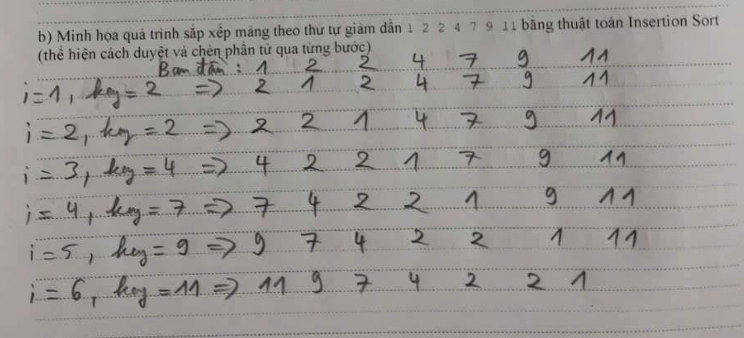 b) Minh họa quá trình sắp xếp mảng theo thứ tự giảm dần 1 2 2 4 7 9 11 bằng thuật toán Insertion Sort
(thể hiện cách duyệt và chèn phần tử qua từng bước)
Ban đầu : 1 2 2 4 7 9 11
i=1, key = 2 => 2 1 2 4 7 9 11
i = 2, key = 2 => 2 2 1 4 7 9 11
i = 3, key = 4 => 4 2 2 1 7 9 11
i = 4, key = 7 => 7 4 2 2 1 9 11
i = 5, key = 9 => 9 7 4 2 2 1 11
i = 6, key = 11 => 11 9 7 4 2 2 1